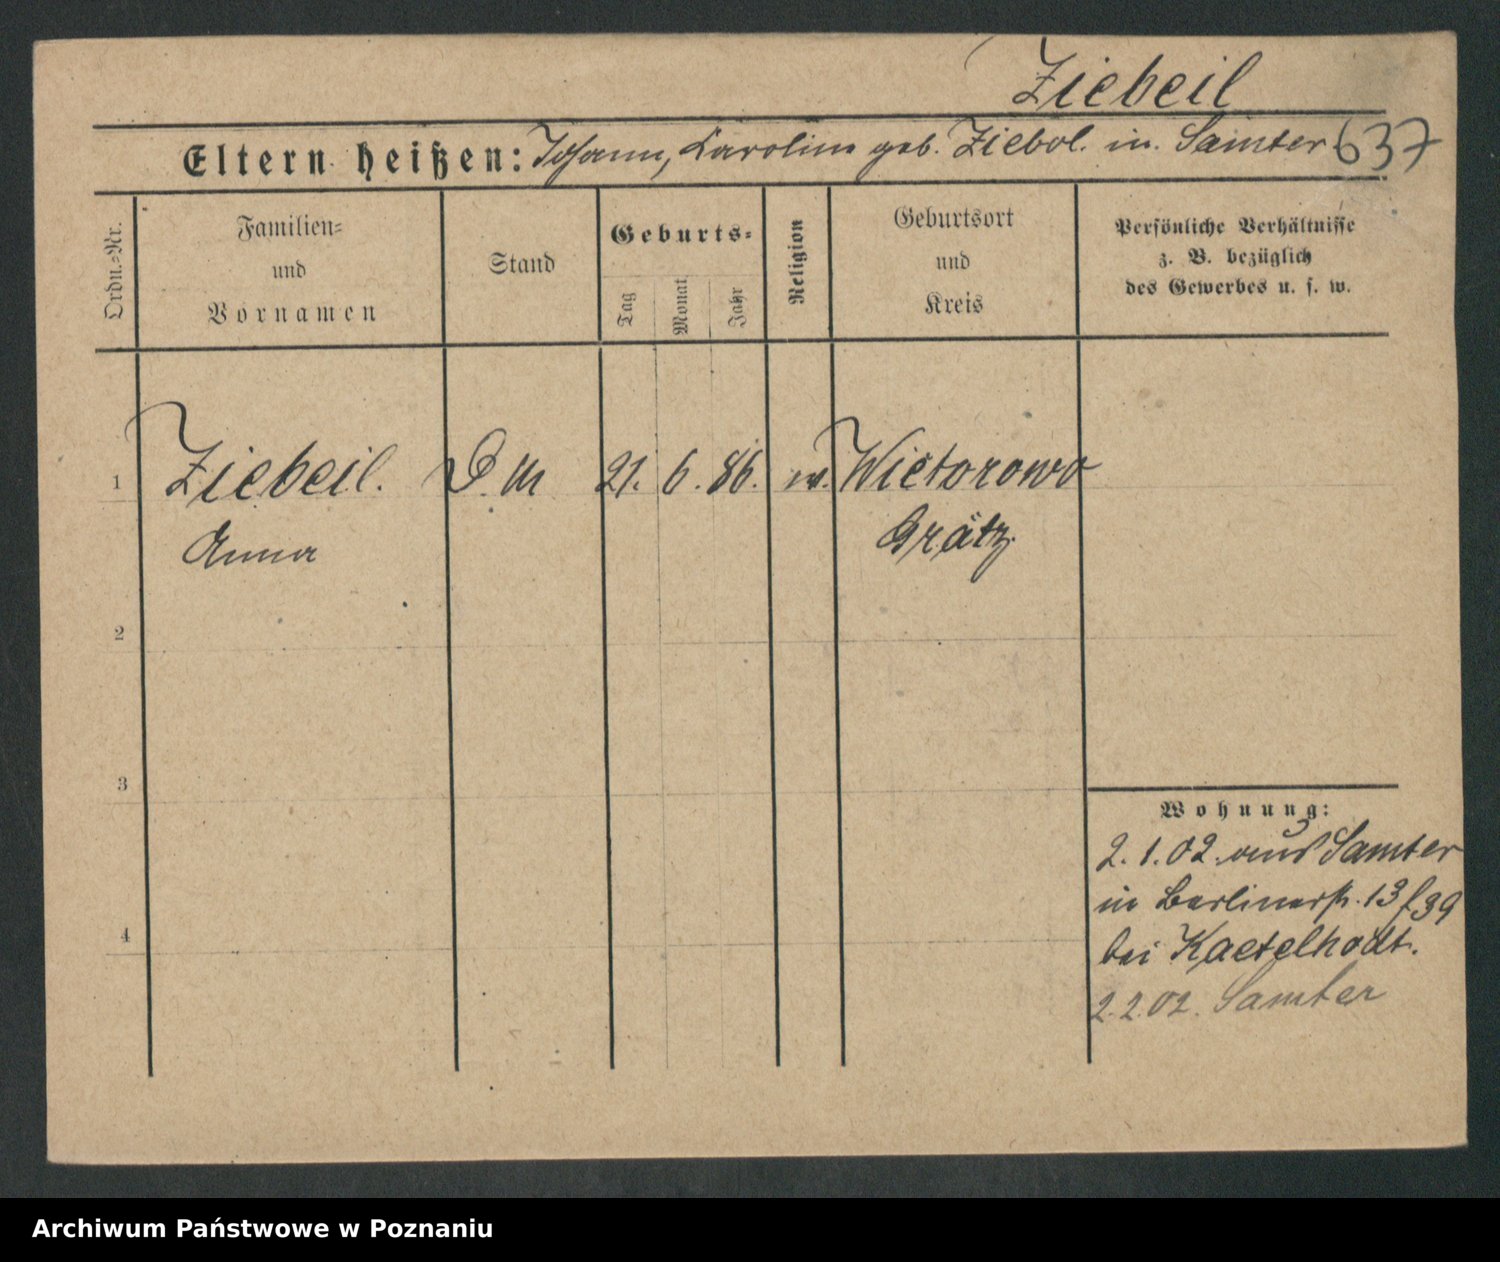 Ziebeil
Eltern heißen: Johann, Karoline geb. Ziebol. in. Samter 637
Ordn.-Nr.
Familien-
und
Vornamen
Stand
Geburts-
Tag
Monat
Jahr
Religion
Geburtsort
und
Kreis
Persönliche Verhältnisse
z. B. bezüglich
des Gewerbes u. s. w.
1 Ziebeil. D. M 21. 6. 86. Wictorowo
Anna Grätz.
2
3
4
Wohnung:
2. 1. 02. aus Samter
in Berlinerstr. 13 f39
bei Kaetelhodt.
2. 2. 02. Samter
Archiwum Państwowe w Poznaniu